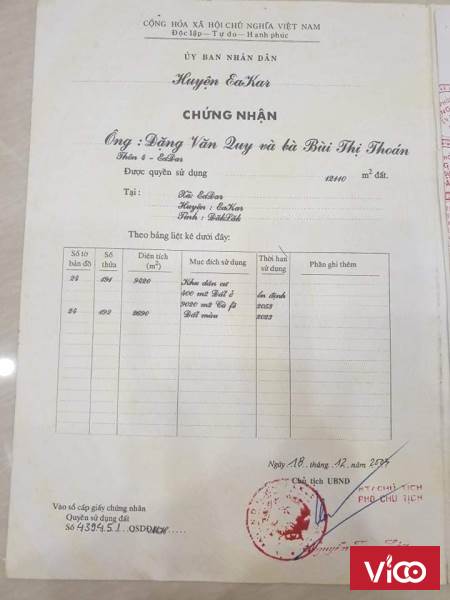 CỘNG HÒA XÃ HỘI CHỦ NGHĨA VIỆT NAM
Độc lập - Tự do - Hạnh phúc
ỦY BAN NHÂN DÂN
Huyện EaKar
CHỨNG NHẬN
Ông : Đặng Văn Quy và bà Bùi Thị Thoán
Thôn 4 - EaDar
Được quyền sử dụng 12110 m² đất.
Tại : Xã: EaDar
Huyện : EaKar
Tỉnh : ĐăkLăk
Theo bảng liệt kê dưới đây:
Số tờ bản đồ Số thửa Diện tích (m²) Mục đích sử dụng Thời hạn sử dụng Phần ghi thêm
24 191 9420 Khu dân cư
400 m2 Đất ở ổn định
9020 m2 Cà fê 2053
24 192 2690 Đất màu 2023
Ngày 18 tháng 12 năm
Chủ tịch UBND
KT/CHỦ TỊCH
PHÓ CHỦ TỊCH
Vào sổ cấp giấy chứng nhận
Quyền sử dụng đất
Số 439451 QSDĐ
Vicoo